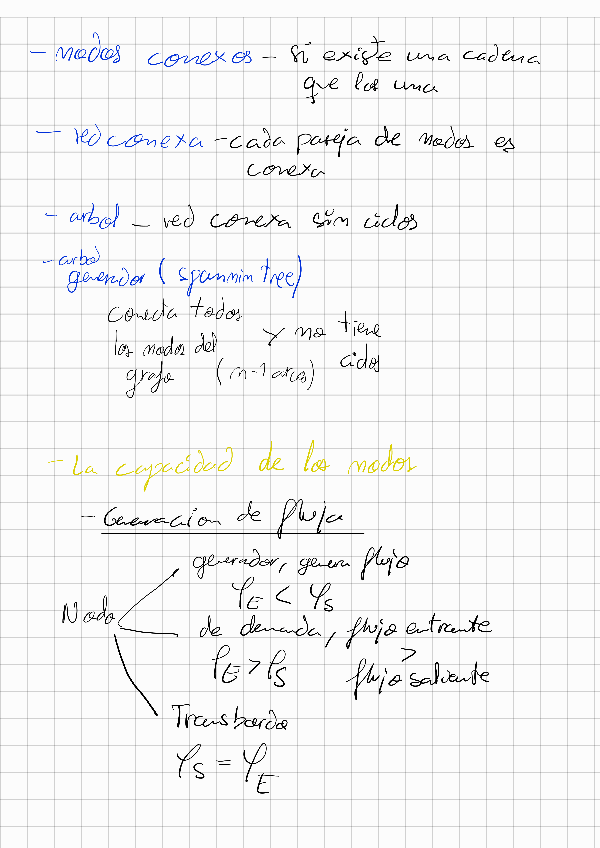 - nodos conexos - si existe una cadena
que los una
- red conexa - cada pareja de nodos es
conexa
- arbol - red conexa sin ciclos
- arbol
generador (spannin tree)
conecta todos
los nodos del y no tiene
grafo (n-1 arcos) ciclos
- La capacidad de los nodos
- Generacion de flujo
generador, genera flujo
φE < φS
Nodo
de demanda, flujo entrante
>
φE > φS flujo saliente
Transbordo
φS = φE